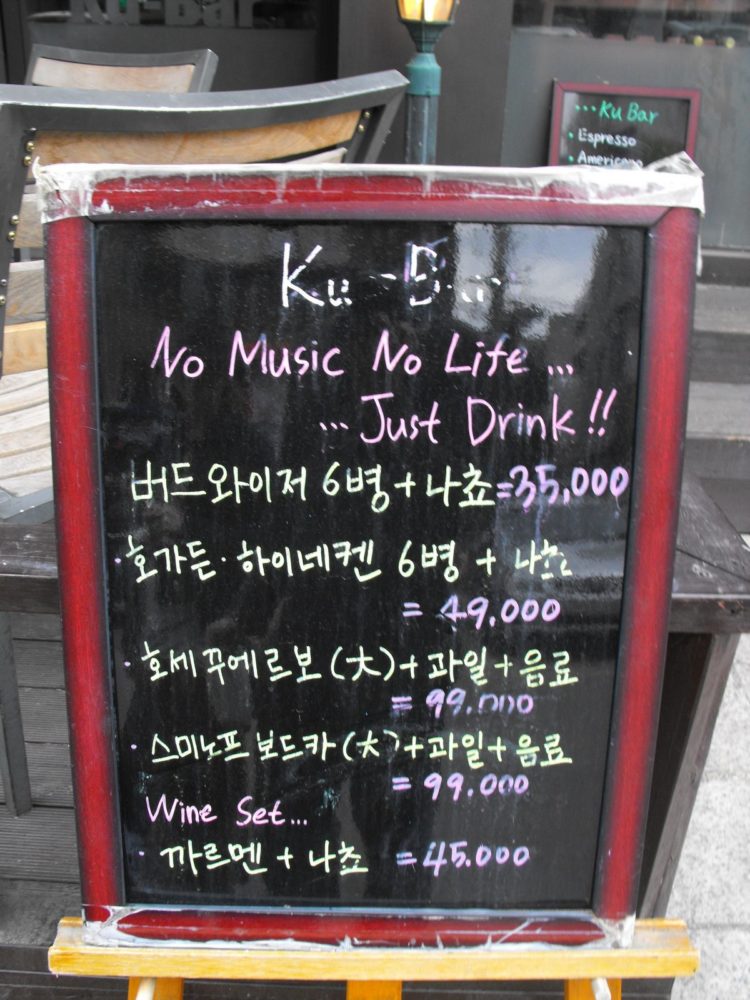 Ku-Bar
...Ku Bar
Espresso
Americano
Ku-Bar
No Music No Life...
...Just Drink!!
버드와이저 6병+나쵸=35,000
·호가든·하이네켄 6병 + 나쵸
= 49,000
·호세꾸에르보(大)+과일+음료
= 99.000
·스미노프보드카(大)+과일+음료
= 99.000
Wine Set...
·까르멘+나쵸 =45.000